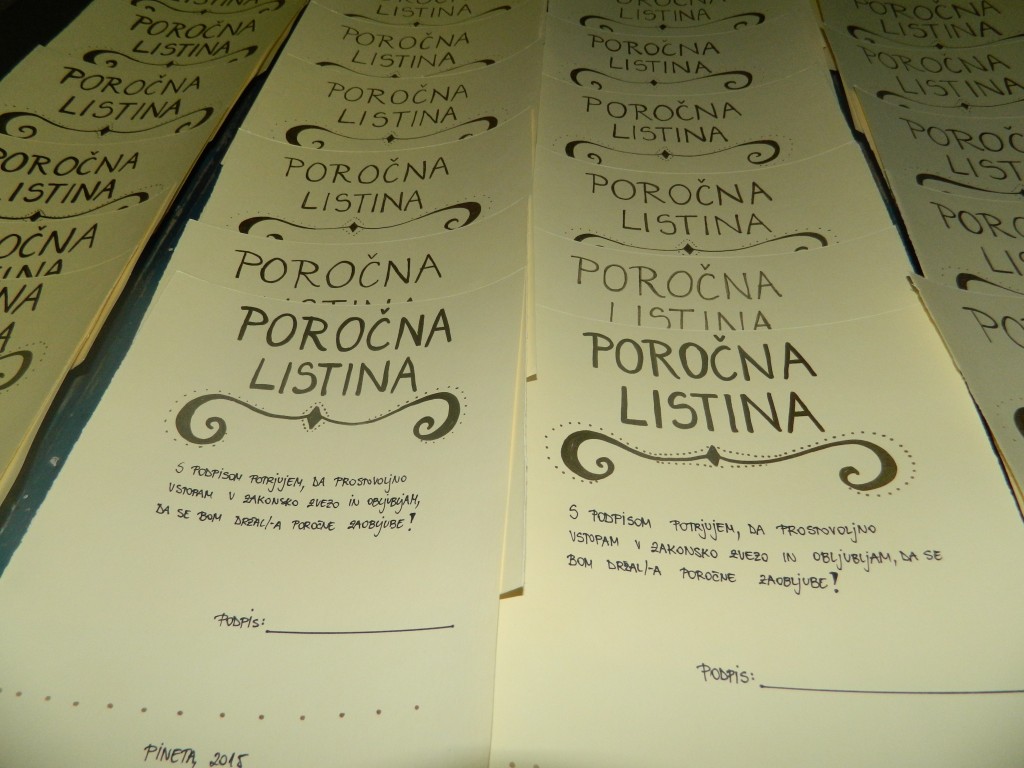 POROČNA
LISTINA
POROČNA
LISTINA
POROČNA
LISTINA
OČNA
NA
LISTINA
POROČNA
LISTINA
POROČNA
LISTINA
POROČNA
LISTINA
POROČNA
LISTINA
POROČNA
LISTINA
S PODPISOM POTRJUJEM, DA PROSTOVOLJNO
VSTOPAM V ZAKONSKO ZVEZO IN OBLJUBLJAM,
DA SE BOM DRŽAL/-A POROČNE ZAOBLJUBE!
PODPIS:
PINETA, 2015
LISTINA
POROČNA
LISTINA
POROČNA
LISTINA
POROČNA
LISTINA
POROČNA
LISTINA
POROČNA
LISTINA
S PODPISOM POTRJUJEM, DA PROSTOVOLJNO
VSTOPAM V ZAKONSKO ZVEZO IN OBLJUBLJAM, DA SE
BOM DRŽAL/-A POROČNE ZAOBLJUBE!
PODPIS:
POROČNA
LISTINA
POROČNA
LISTINA
POROČN
LIST
PORO
LIS
PO